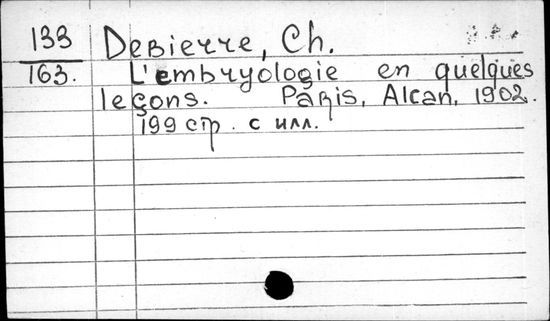 133 Debierre, Ch.
163. L'embryologie en quelques
leçons. Paris, Alcan, 1902.
199 стр. с илл.